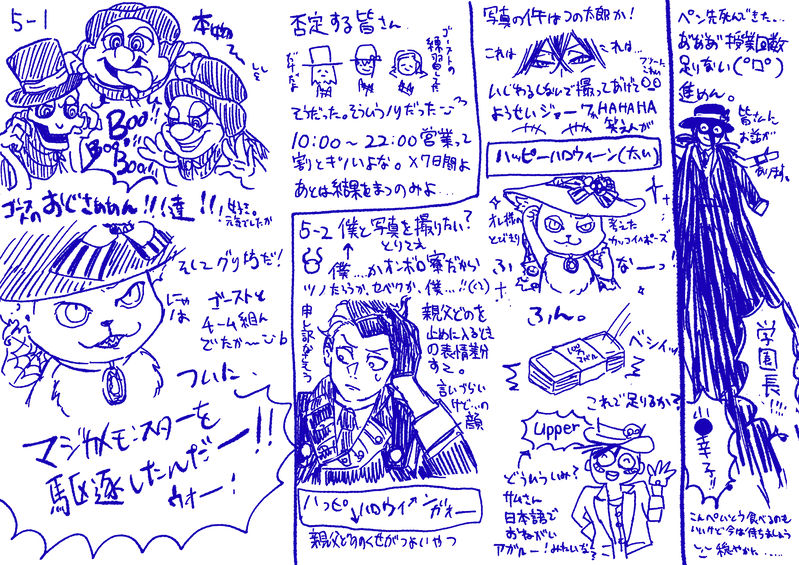 5-1
本物でー
ししし
BOO!!
BOO!!
BOO!!
ゴーストのおじさぁぁん!!!達!!
元気でしたか
そしてグリ坊だ!
にゃは
ゴーストと
チーム組ん
でたか〜
ついに、
マジカメモンスターを
駆逐したんだー!!
ウォー!
否定する皆さん…
ゴーストの
練習して
だってよ
そうだった。そういうノリだった
10:00〜22:00営業って
割とキツいよな。×7日間よ
あとは結果をまつのみよ…
5-2 僕と写真を撮りたい?
とりてえ
僕…かオンボロ寮だから
ツノたろうか、セベクか、僕…!!(?)
申し訳なさそう
親父どのを
止めに入るとき
の表情差分
すこ。
言いづらい
けど…の
顔
ハッピ↓ハロウィ↑ンガオー
親父どのくせがつよいやつ
写真の件はつの太郎か!
これは
これは…
いじわるしないで撮ってあげて
ようせいジョークHAHAHA
笑えんが
ハッピーハロウィーン(太い)
オレ様の
とびきり
考えた
カッコイイポーズ
ふ
なーっ!
ふん。
100万マドル
ベシィッ
これで足りるか?
upper
どういういみ?
サムさん
日本語で
おねがい
アガルー!みたいな?
ペン先死んできた…
あ゛あ゛あ゛授業回数
足りない(°ロ°)
進めん。
皆さんに
お話が
あります。
学園長!!!
幸子!!
こんぺいとう食べるのも
いいけど今は待ちましょう